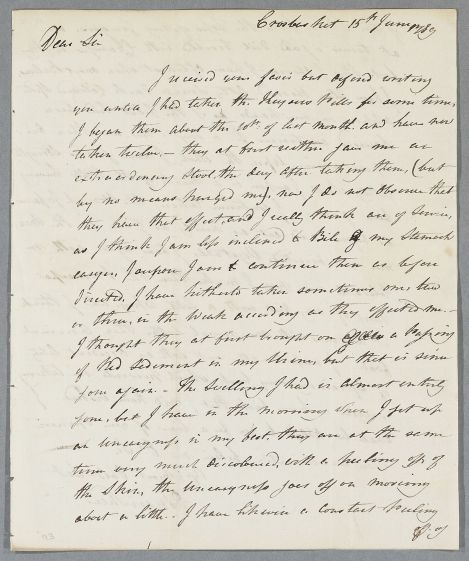 Crosbasket 15th June 1789
Dear Sir
I received your favor but defered writing
you untill I had taken the Keysers Pills for some time,
I began them about the 20th. of last month. and have now
taken twelve, — they at first rather gave me an
extraordinary Stool, the day after taking them, (but
by no means purged me), now I do not observe that
they have that effect, and I really think are of Service,
as I think I am less inclined to Bile & my Stomach
easyer, I suppose I am to continue them as before
directed, I have hitherto taken sometimes one, two
or three, in the week according as they affected me. —
I thought they at first brought on a passing
of Red sediment in my Urine, but that is since
gone again. — The Swelling I had is almost entirely
gone, but I have in the mornings when I get up
an uneasyness in my feet, they are at the same
time very much discoloured, with a peeling off of
the Skin, the uneasyness goes off on moving
about a little. — I have likewise a constant peeling
off of